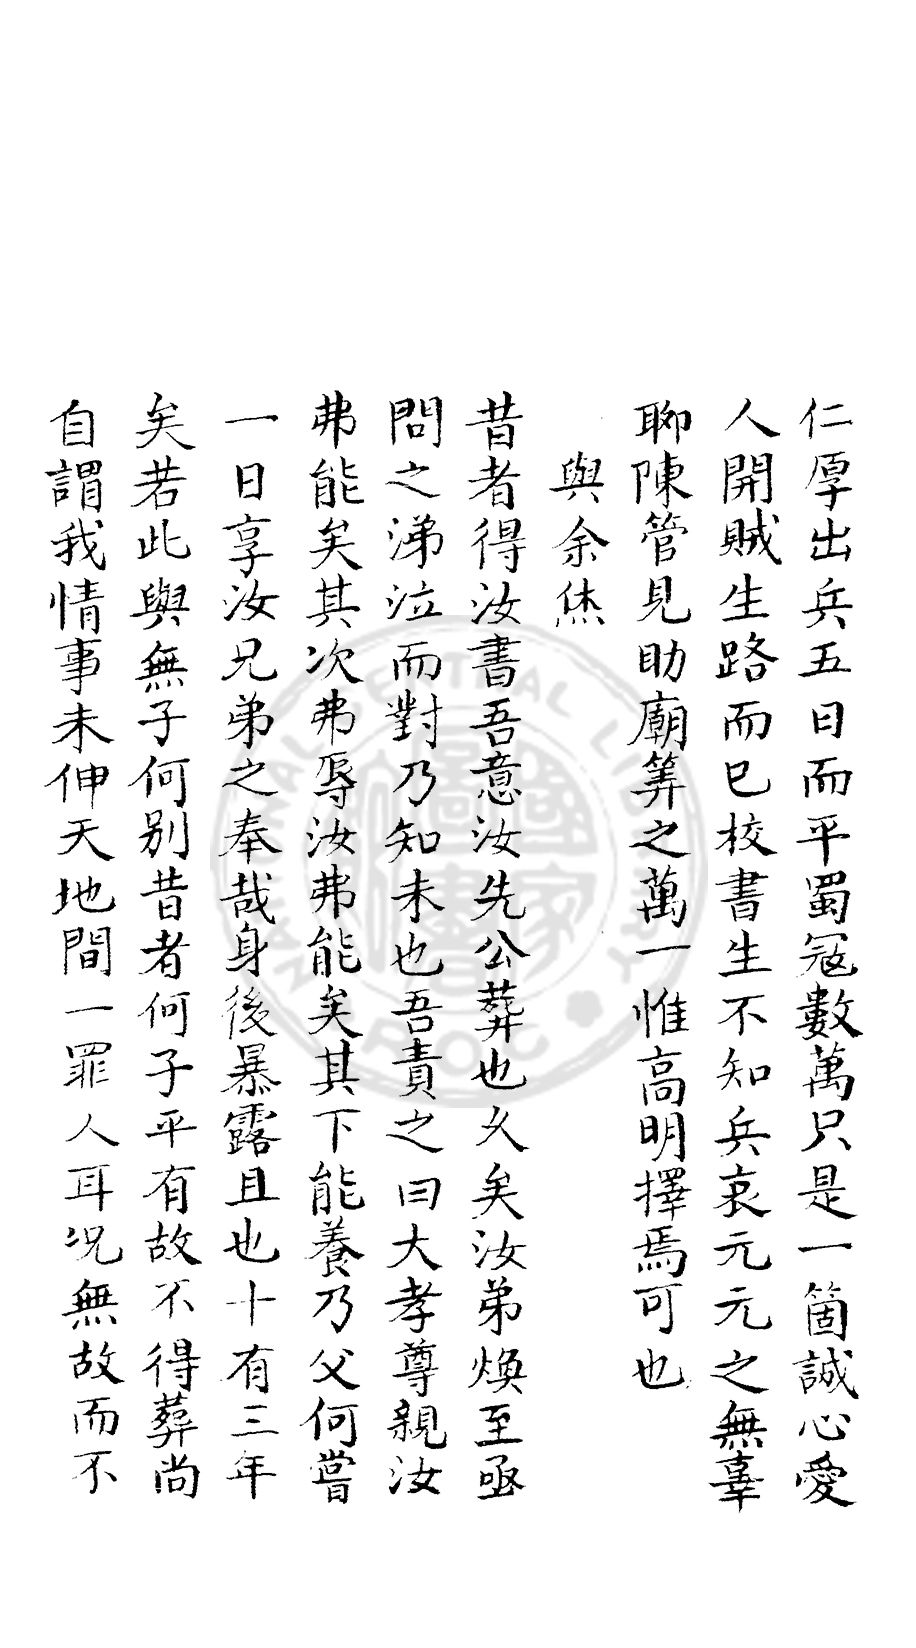 仁厚出兵五日而平蜀冦數萬只是一箇誠心愛
人開賊生路而已校書生不知兵哀元元之無辜
聊陳管見助廟筭之萬一惟高明擇焉可也
與余烋
昔者得汝書吾意汝先公葬也久矣汝弟煥至亟
問之涕泣而對乃知未也吾責之曰大孝尊親汝
弗能矣其次弗辱汝弗能矣其下能養乃父何嘗
一日享汝兄弟之奉哉身後暴露且也十有三年
矣若此與無子何别昔者何子平有故不得葬尚
自謂我情事未伸天地間一罪人耳况無故而不
NATIONAL CENTRAL LIBRARY
R.O.C.
國家圖書館